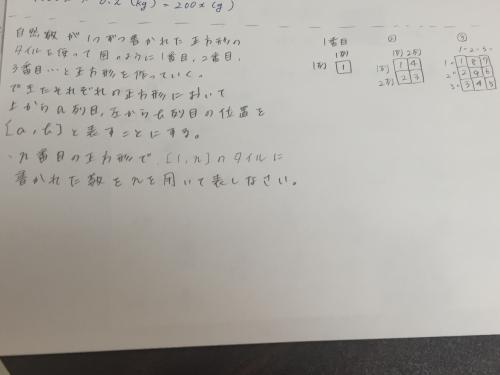 0.2x (kg) = 200x (g)
自然数が1つずつ書かれた正方形の
タイルを使って図のように1番目, 2番目,
3番目…と正方形を作っていく。
できたそれぞれの正方形において
上からa列目, 左からb列目の位置を
[a, b]と表すことにする。
・n番目の正方形で [1, n]のタイルに
書かれた数をnを用いて表しなさい。
1番目
1列
1列 1
②
1列 2列
1列 1 4
2列 2 3
③
1- 2- 3-
1- 1 8 7
2- 2 9 6
3- 3 4 5